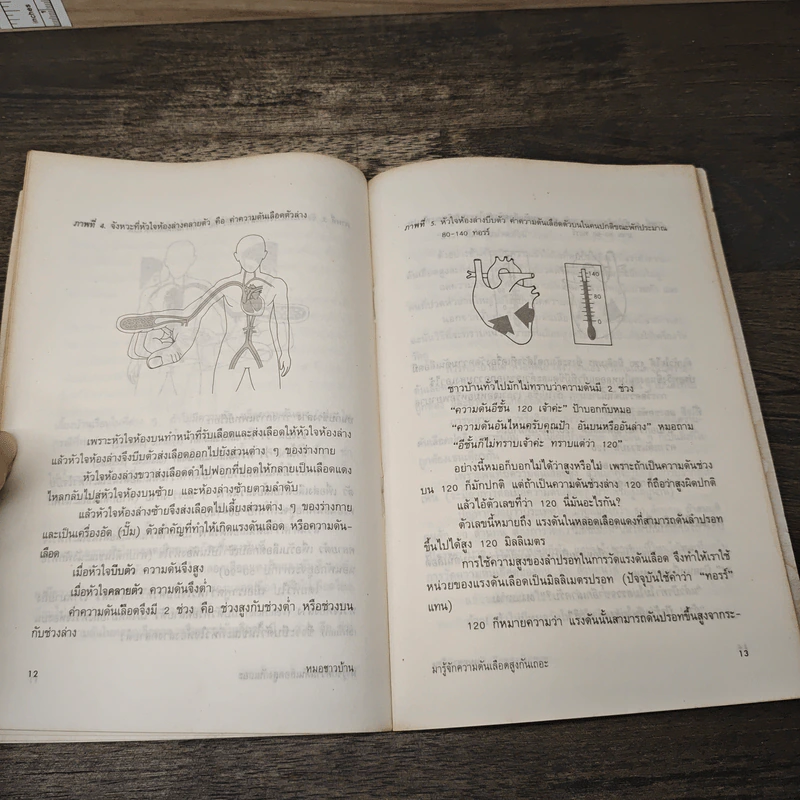 ภาพที่ 4. จังหวะที่หัวใจห้องล่างคลายตัว คือ ค่าความดันเลือดตัวล่าง
เพราะหัวใจห้องบนทำหน้าที่รับเลือดและส่งเลือดให้หัวใจห้องล่าง
แล้วหัวใจห้องล่างจึงบีบตัวส่งเลือดออกไปยังส่วนต่าง ๆ ของร่างกาย
หัวใจห้องล่างขวาส่งเลือดดำไปฟอกที่ปอดให้กลายเป็นเลือดแดง
ไหลกลับไปสู่หัวใจห้องบนซ้าย และห้องล่างซ้ายตามลำดับ
แล้วหัวใจห้องล่างซ้ายจึงส่งเลือดไปเลี้ยงส่วนต่าง ๆ ของร่างกาย
และเป็นเครื่องอัด (ปั๊ม) ตัวสำคัญที่ทำให้เกิดแรงดันเลือด หรือความดัน-
เลือด
เมื่อหัวใจบีบตัว ความดันจึงสูง
เมื่อหัวใจคลายตัว ความดันจึงต่ำ
ค่าความดันเลือดจึงมี 2 ช่วง คือ ช่วงสูงกับช่วงต่ำ หรือช่วงบน
กับช่วงล่าง
12
หมอชาวบ้าน
ภาพที่ 5. หัวใจห้องล่างบีบตัว ค่าความดันเลือดตัวบนในคนปกติขณะพักประมาณ
80-140 ทอรร์
140
80
0
ชาวบ้านทั่วไปมักไม่ทราบว่าความดันมี 2 ช่วง
"ความดันอีชั้น 120 เจ้าค่ะ" ป้าบอกกับหมอ
"ความดันอันไหนครับคุณป้า อันบนหรืออันล่าง" หมอถาม
"อีชั้นก็ไม่ทราบเจ้าค่ะ ทราบแต่ว่า 120"
อย่างนี้หมอก็บอกไม่ได้ว่าสูงหรือไม่ เพราะถ้าเป็นความดันช่วง
บน 120 ก็มักปกติ แต่ถ้าเป็นความดันช่วงล่าง 120 ก็ถือว่าสูงผิดปกติ
แล้วไอ้ตัวเลขที่ว่า 120 นี่มันอะไรกัน?
ตัวเลขนี้หมายถึง แรงดันในหลอดเลือดแดงที่สามารถดันลำปรอท
ขึ้นไปได้สูง 120 มิลลิเมตร
การใช้ความสูงของลำปรอทในการวัดแรงดันเลือด จึงทำให้เราใช้
หน่วยของแรงดันเลือดเป็นมิลลิเมตรปรอท (ปัจจุบันใช้คำว่า "ทอรร์"
แทน)
120 ก็หมายความว่า แรงดันนั้นสามารถดันปรอทขึ้นสูงจากระ-
มารู้จักความดันเลือดสูงกันเถอะ
13